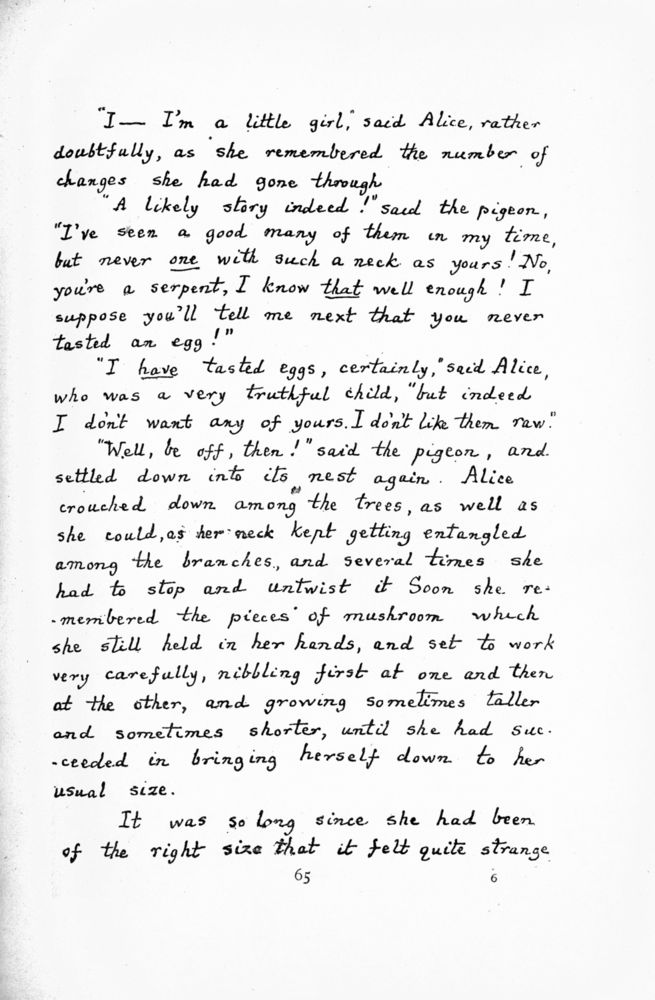 "I— I'm a little girl," said Alice, rather
doubtfully, as she remembered the number of
changes she had gone through
"A likely story indeed!" said the pigeon,
"I've seen a good many of them in my time,
but never one with such a neck as yours! No,
you're a serpent, I know that well enough! I
suppose you'll tell me next that you never
tasted an egg!"
"I have tasted eggs, certainly," said Alice,
who was a very truthful child, "but indeed
I don't want any of yours. I don't like them raw."
"Well, be off, then!" said the pigeon, and
settled down into its nest again. Alice
crouched down among the trees, as well as
she could, as her neck kept getting entangled
among the branches, and several times she
had to stop and untwist it Soon she re-
-membered the pieces of mushroom which
she still held in her hands, and set to work
very carefully, nibbling first at one and then
at the other, and growing sometimes taller
and sometimes shorter, until she had suc-
-ceeded in bringing herself down to her
usual size.
It was so long since she had been
of the right size that it felt quite strange
65 6